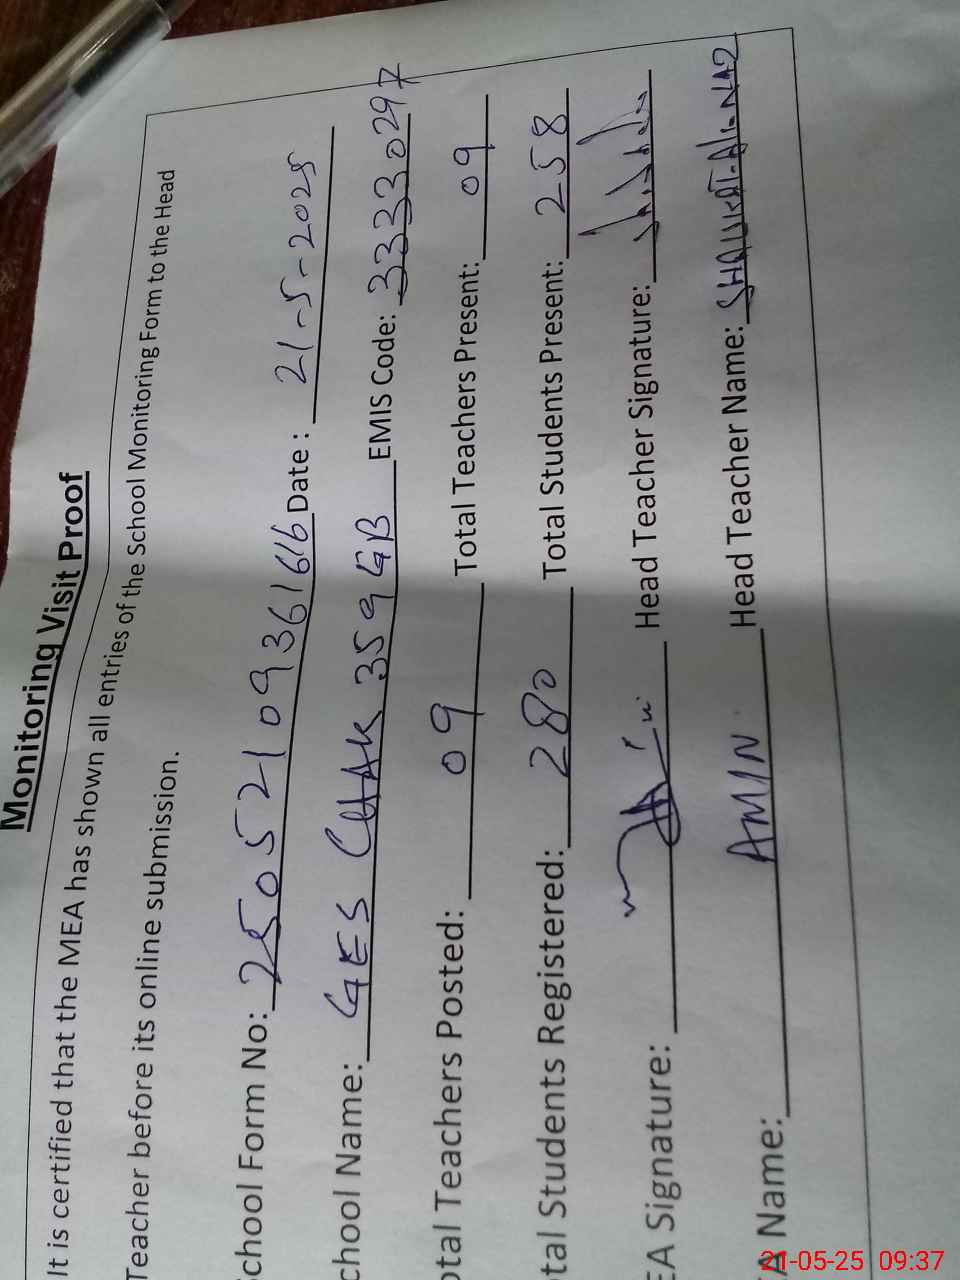 Monitoring Visit Proof
It is certified that the MEA has shown all entries of the School Monitoring Form to the Head
Teacher before its online submission.
School Form No: 250521093616 Date : 21-5-2025
chool Name: GES CHAK 359 GB EMIS Code: 33330297
otal Teachers Posted: 09 Total Teachers Present: 09
tal Students Registered: 280 Total Students Present: 258
EA Signature: Head Teacher Signature:
A Name: AMIN Head Teacher Name: SHAUKAT ALI
21-05-25 09:37